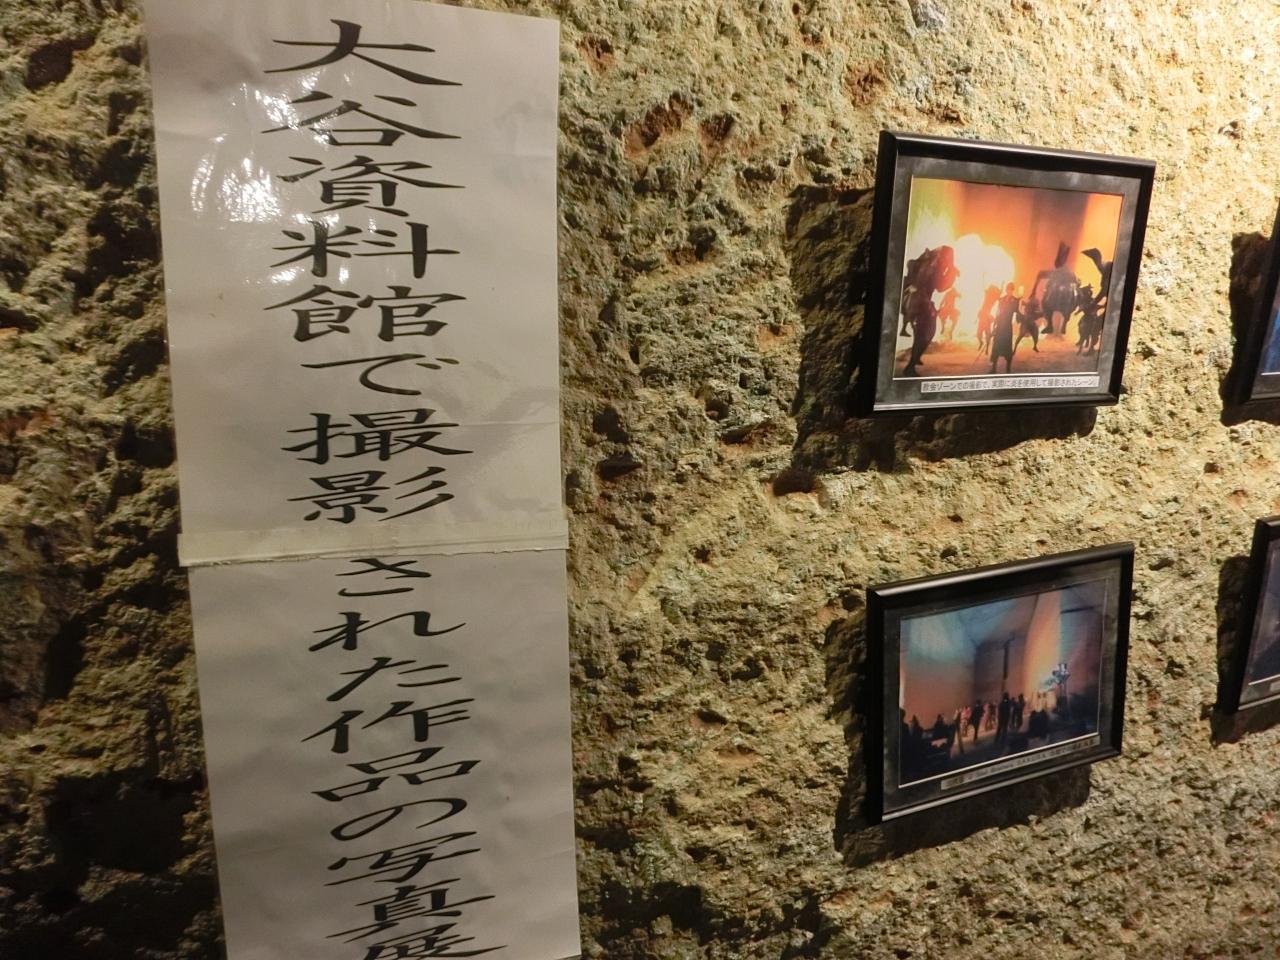 大谷資料館で撮影された作品の写真展
教会ゾーンでの撮影で、実際に炎を使用して撮影されたシーン。